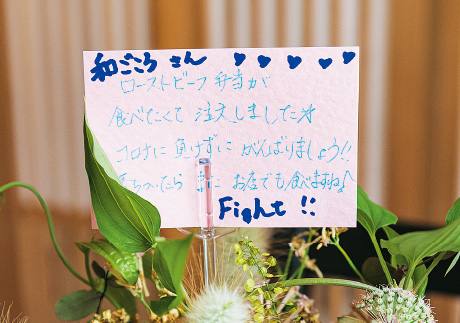 和ごころ さん ♥ ♥ ♥ ♥ ♥
ローストビーフ弁当が
食べたくて 注文しました☆
コロナに 負けずに がんばりましょう!!
落ちついたら また お店でも食べますね♪
Fight !!